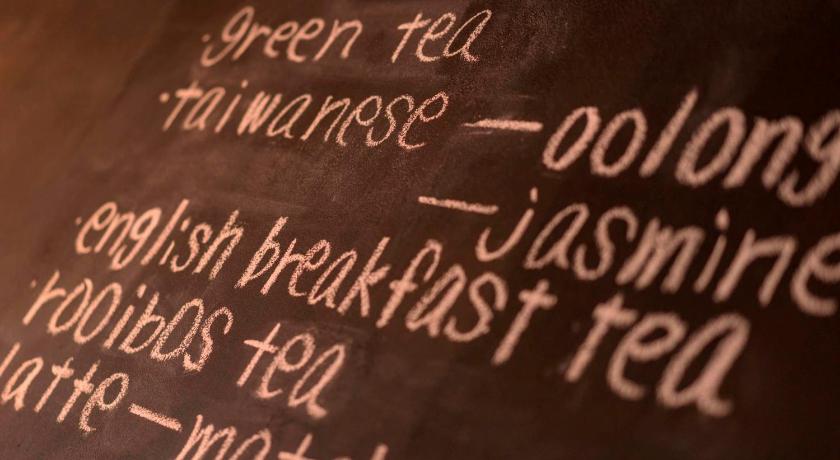 ·green tea
·taiwanese — oolong
— jasmine
·english breakfast tea
·rooibos tea
latte —